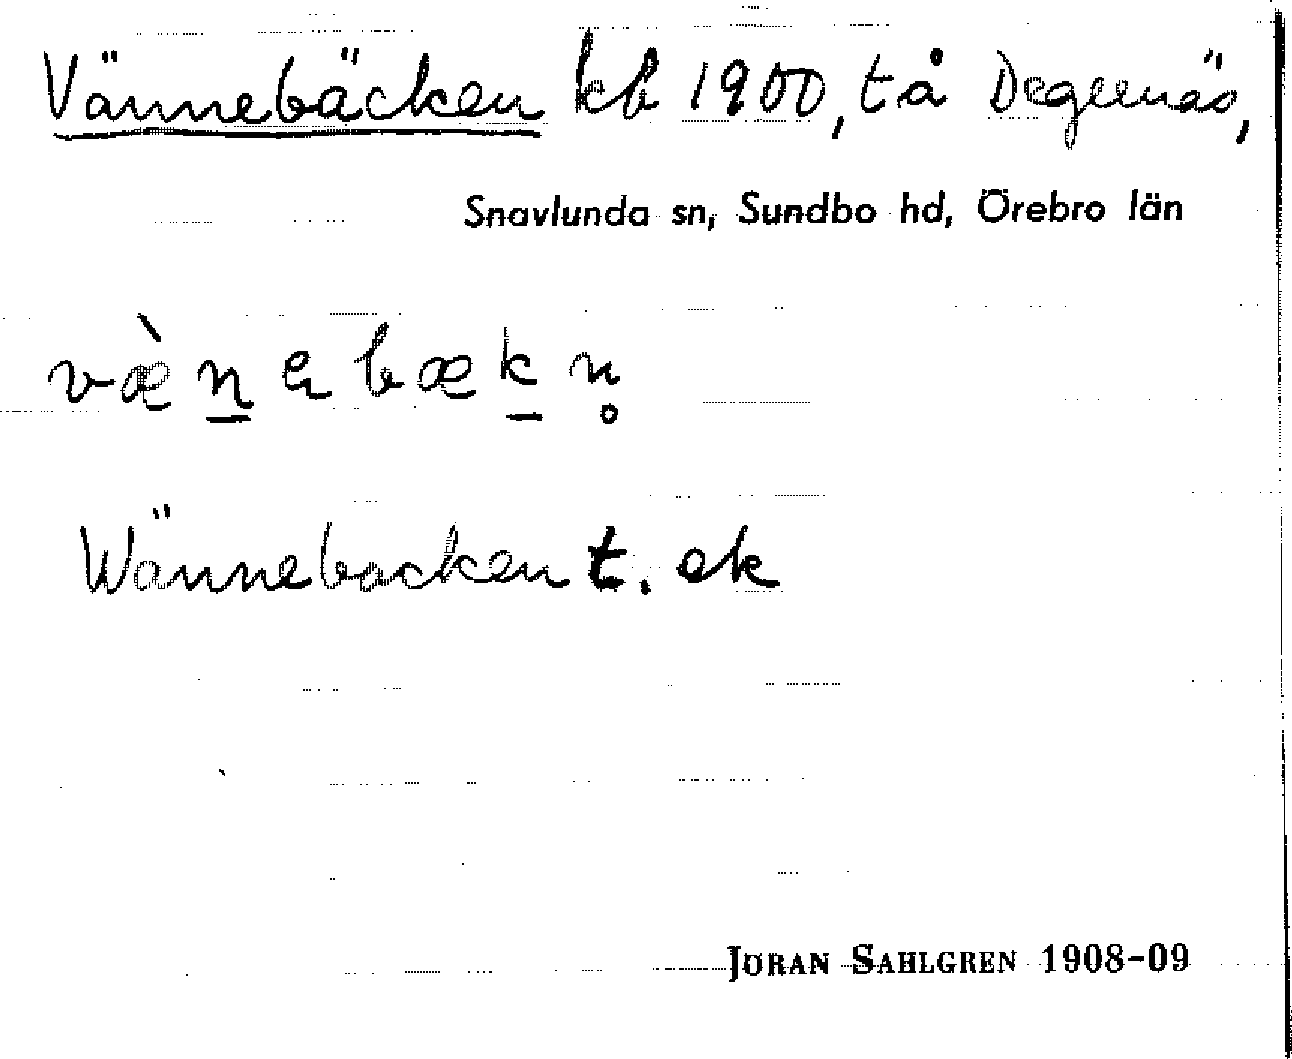 Vännebäcken kb 1900, tå Degernäs,
Snavlunda sn, Sundbo hd, Örebro län
væ̀n̲ebæk̲n̥
Wännebacken t. ek
JÖRAN SAHLGREN 1908-09